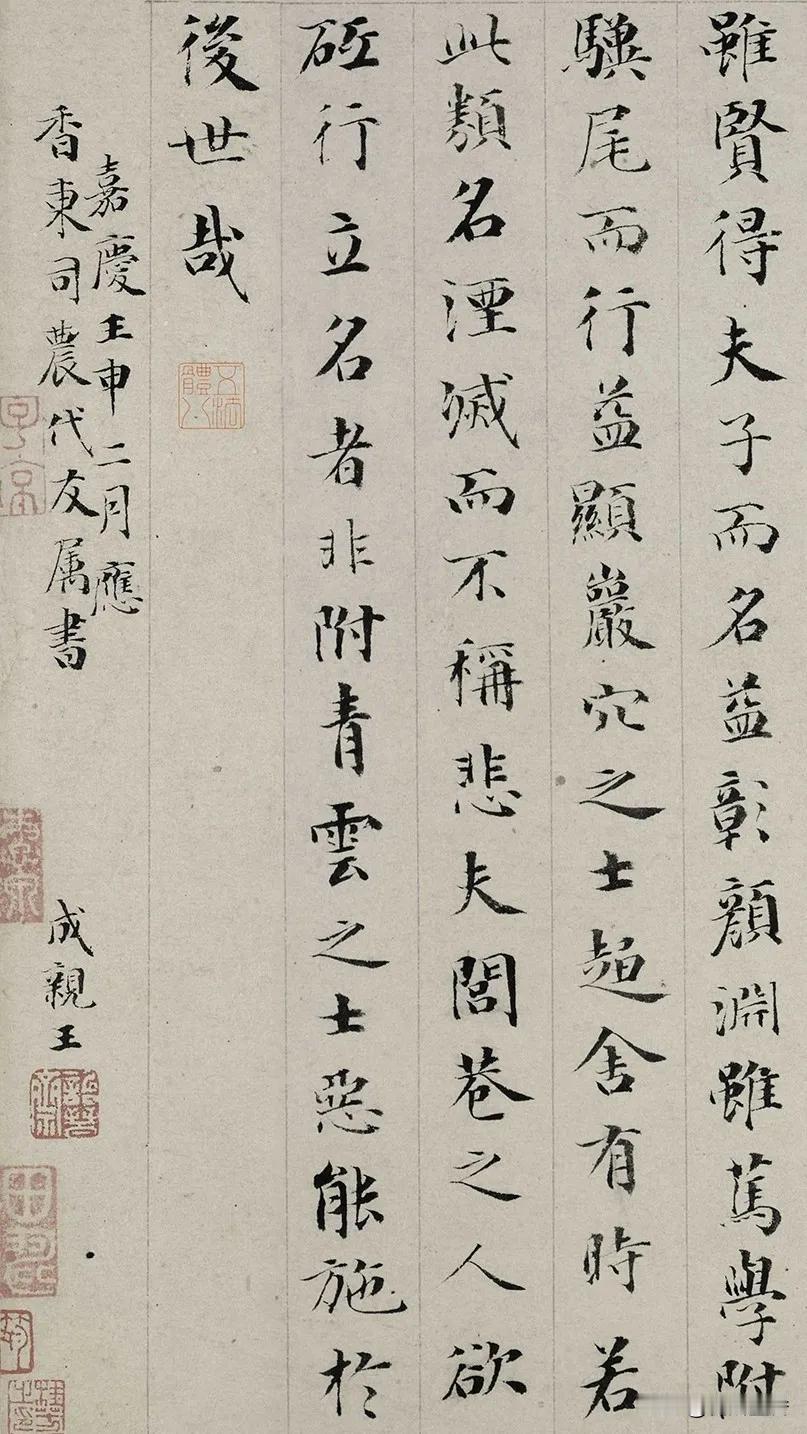 雖賢得夫子而名益彰顏淵雖篤學附
驥尾而行益顯巖穴之士趨舍有時若
此類名湮滅而不稱悲夫閭巷之人欲
砥行立名者非附青雲之士惡能施於
後世哉
嘉慶壬申二月應
香東司農代友属書
成親王